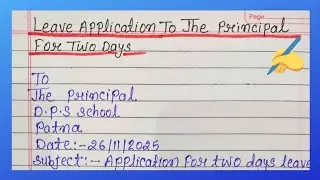 Page
Leave Application To The Principal
For Two Days
To
The Principal
D.P.S School
Patna
Date:-26/11/2025
Subject:- Application for two days leave